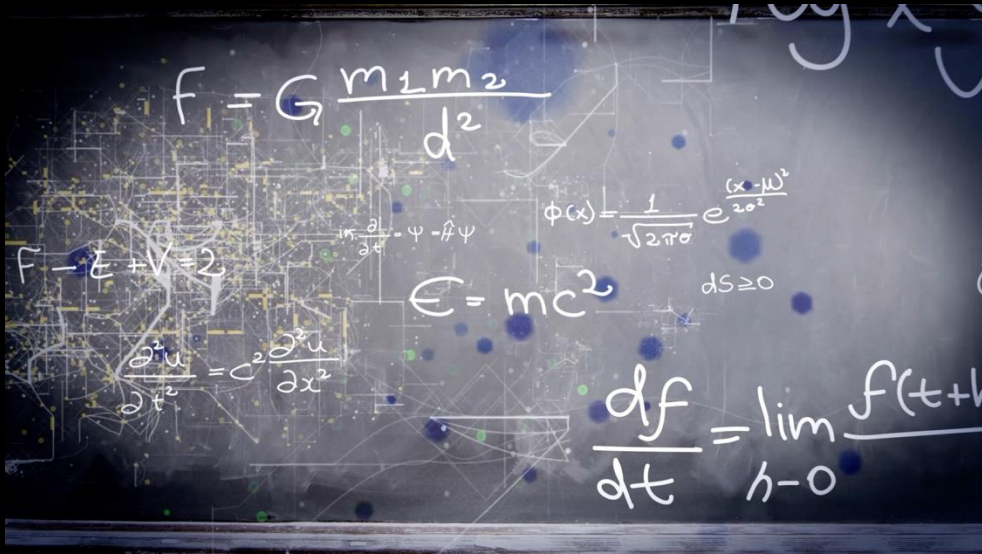 F = G m1m2 / d²
Φ(x) = 1 / √2πσ e (x-μ)² / 2σ²
iℏ ∂ / ∂t - Ψ = ĤΨ
F - E + V = 2
E = mc²
dS ≥ 0
∂²u / ∂t² = c² ∂²u / ∂x²
df / dt = lim h-0 f(t+h